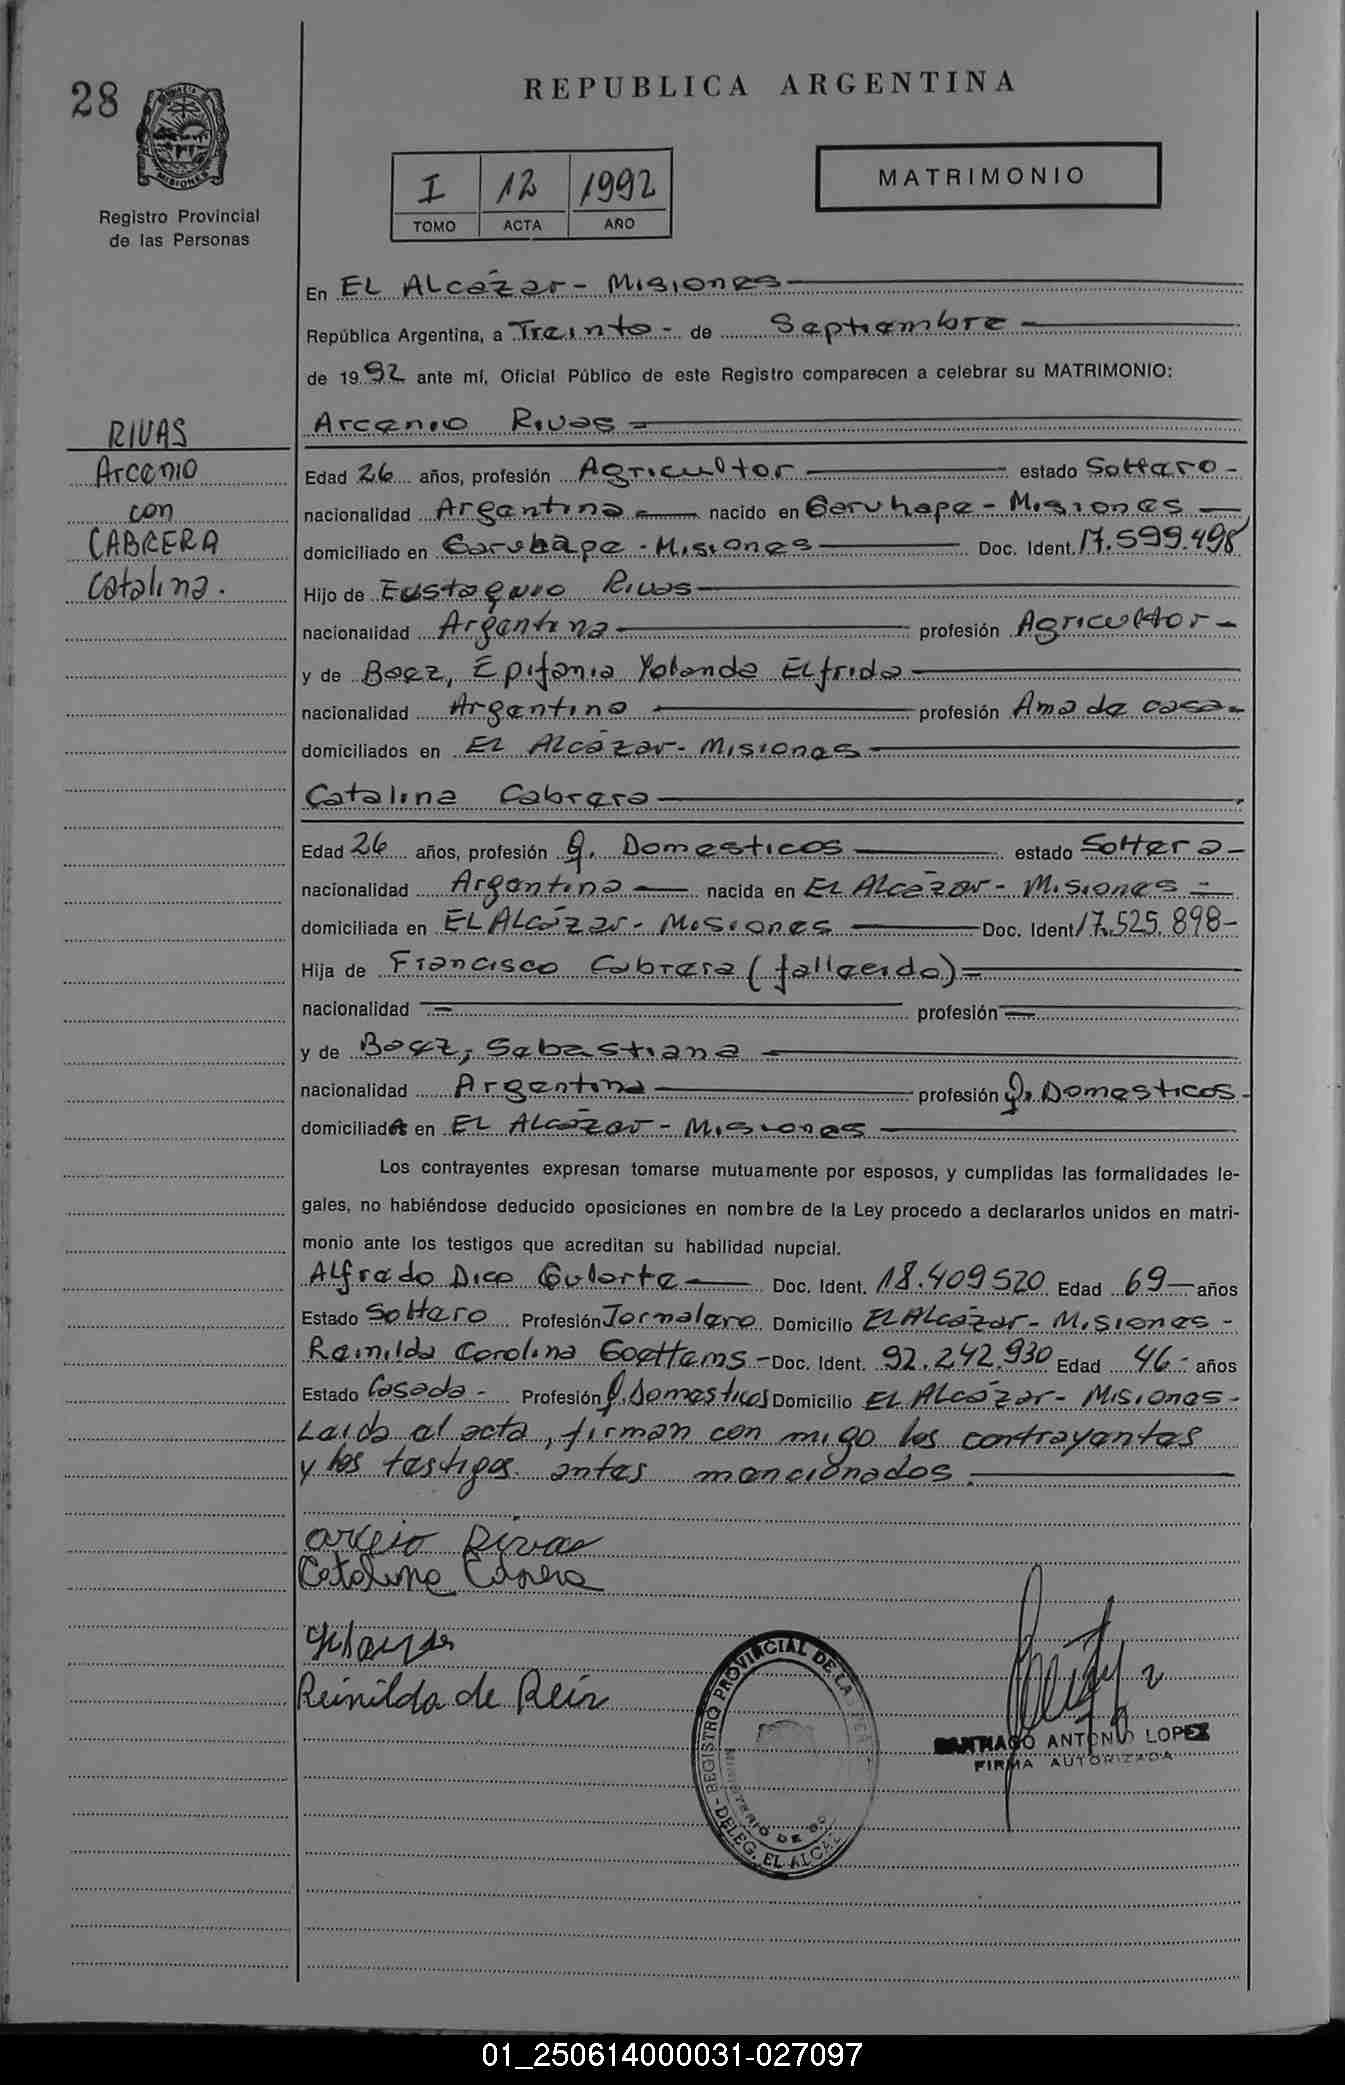 28
MISIONES
Registro Provincial
de las Personas
REPUBLICA ARGENTINA
I 12 1992
TOMO ACTA AÑO
MATRIMONIO
En El Alcázar - Misiones
República Argentina, a Treinta - de Septiembre
de 1992 ante mí, Oficial Público de este Registro comparecen a celebrar su MATRIMONIO:
RIVAS
Arcenio
con
CABRERA
Catalina.
Arcenio Rivas
Edad 26 años, profesión Agricultor estado Soltero -
nacionalidad Argentina nacido en Garuhape - Misiones
domiciliado en Garuhape - Misiones Doc. Ident. 17.599.498
Hijo de Eustaquio Rivas
nacionalidad Argentina profesión Agricultor -
y de Baez, Epifania Yolanda Elfrida
nacionalidad Argentina profesión Ama de casa -
domiciliados en El Alcázar - Misiones
Catalina Cabrera
Edad 26 años, profesión Q. Domesticos estado Soltera -
nacionalidad Argentina nacida en El Alcázar - Misiones -
domiciliada en El Alcázar - Misiones Doc. Ident 17.525.898 -
Hija de Francisco Cabrera (fallecido) =
nacionalidad - profesión -
y de Baez, Sebastiana
nacionalidad Argentina profesión Q. Domesticos -
domiciliada en El Alcázar - Misiones
Los contrayentes expresan tomarse mutuamente por esposos, y cumplidas las formalidades le-
gales, no habiéndose deducido oposiciones en nombre de la Ley procedo a declararlos unidos en matri-
monio ante los testigos que acreditan su habilidad nupcial.
Alfredo Dico Gularte Doc. Ident. 18.409520 Edad 69 años
Estado Soltero Profesión Jornalero Domicilio El Alcázar - Misiones -
Reinilda Carolina Goettems - Doc. Ident. 92.242.930 Edad 46 - años
Estado Casada - Profesión Q. Domesticos Domicilio El Alcázar - Misiones -
Leida el acta, firman con migo los contrayentes
y los testigos antes mencionados.
Arceio Rivas
Catalina
Reinilda de Rein
REGISTRO PROVINCIAL DE LAS
MINISTERIO DE GO
- DELEG. EL ALCAZ
SANTIAGO ANTONIO LOPEZ
FIRMA AUTORIZADA
01_250614000031-027097